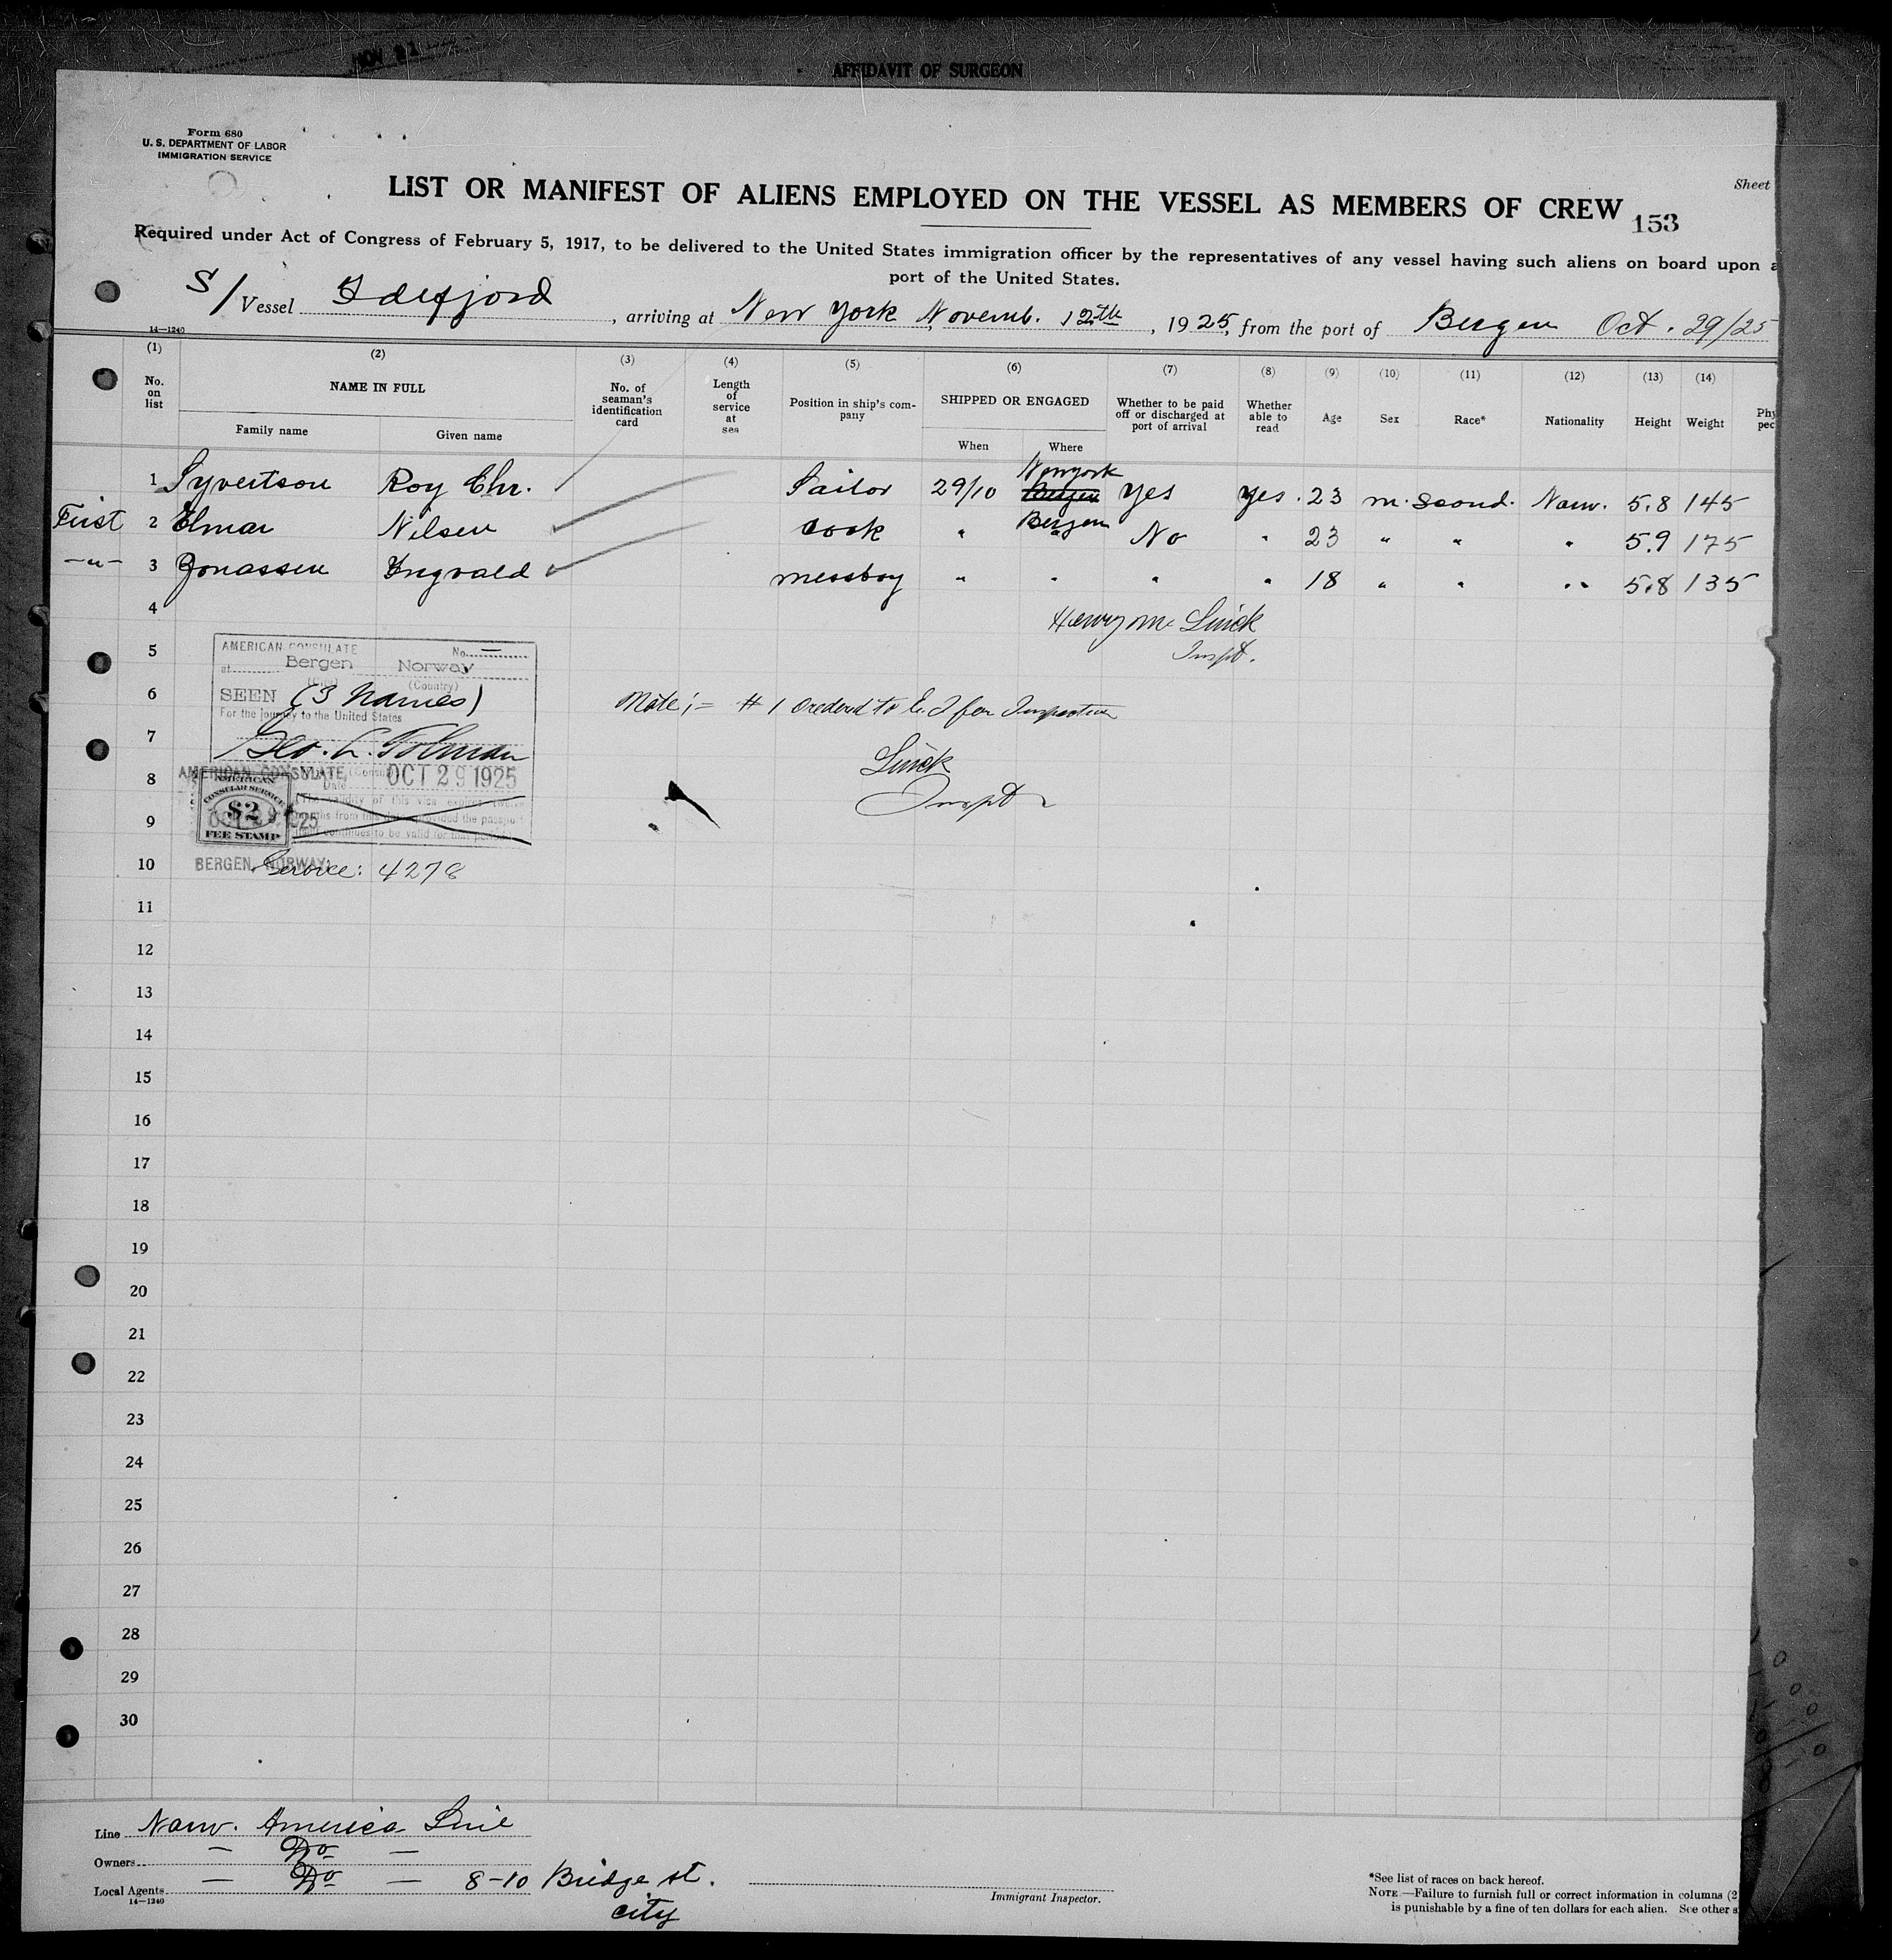 NOV 21
AFFIDAVIT OF SURGEON
Form 680
U. S. DEPARTMENT OF LABOR
IMMIGRATION SERVICE
Sheet
LIST OR MANIFEST OF ALIENS EMPLOYED ON THE VESSEL AS MEMBERS OF CREW
153
Required under Act of Congress of February 5, 1917, to be delivered to the United States immigration officer by the representatives of any vessel having such aliens on board upon a
port of the United States.
S/ Vessel Idefjord, arriving at New York Novemb. 12th, 1925, from the port of Bergen Oct. 29/25
14—1240
(1) (2) (3) (4) (5) (6) (7) (8) (9) (10) (11) (12) (13) (14)
No. on list NAME IN FULL No. of seaman's identification card Length of service at sea Position in ship's company SHIPPED OR ENGAGED Whether to be paid off or discharged at port of arrival Whether able to read Age Sex Race* Nationality Height Weight Phy pec
Family name Given name When Where
Newyork
1 Syvertson Roy Chr. Sailor 29/10 Bergen Yes Yes. 23 m. Scand. Norw. 5.8 145
First 2 Elmar Nilsen cook " Bergen No " 23 " " " 5.9 175
—"— 3 Jonassen Ingvald messboy " " " " 18 " " " 5.8 135
4
Henry M. Linick
5
Inspt.
AMERICAN CONSULATE No. —
at Bergen Norway
(City) (Country)
6
SEEN (3 names)
For the journey to the United States
Note;= #1 ordered to E.I for Inspection
7
Geo. L. Tolman
Linick
8
AMERICAN CONSULATE, (Consul
Date OCT 29 1925
Inspt
AMERICAN
CONSULAR SERVICE
$2
FEE STAMP
(The validity of this visa expires twelve
months from this date provided the passport
continues to be valid for that period)
9
10
BERGEN, NORWAY.
Service: 4278
11
12
13
14
15
16
17
18
19
20
21
22
23
24
25
26
27
28
29
30
Line Norw. America Line
Owners — Do —
Local Agents — Do — 8-10 Bridge st.
14—1240
city
Immigrant Inspector.
*See list of races on back hereof.
NOTE.—Failure to furnish full or correct information in columns (2
is punishable by a fine of ten dollars for each alien. See other s